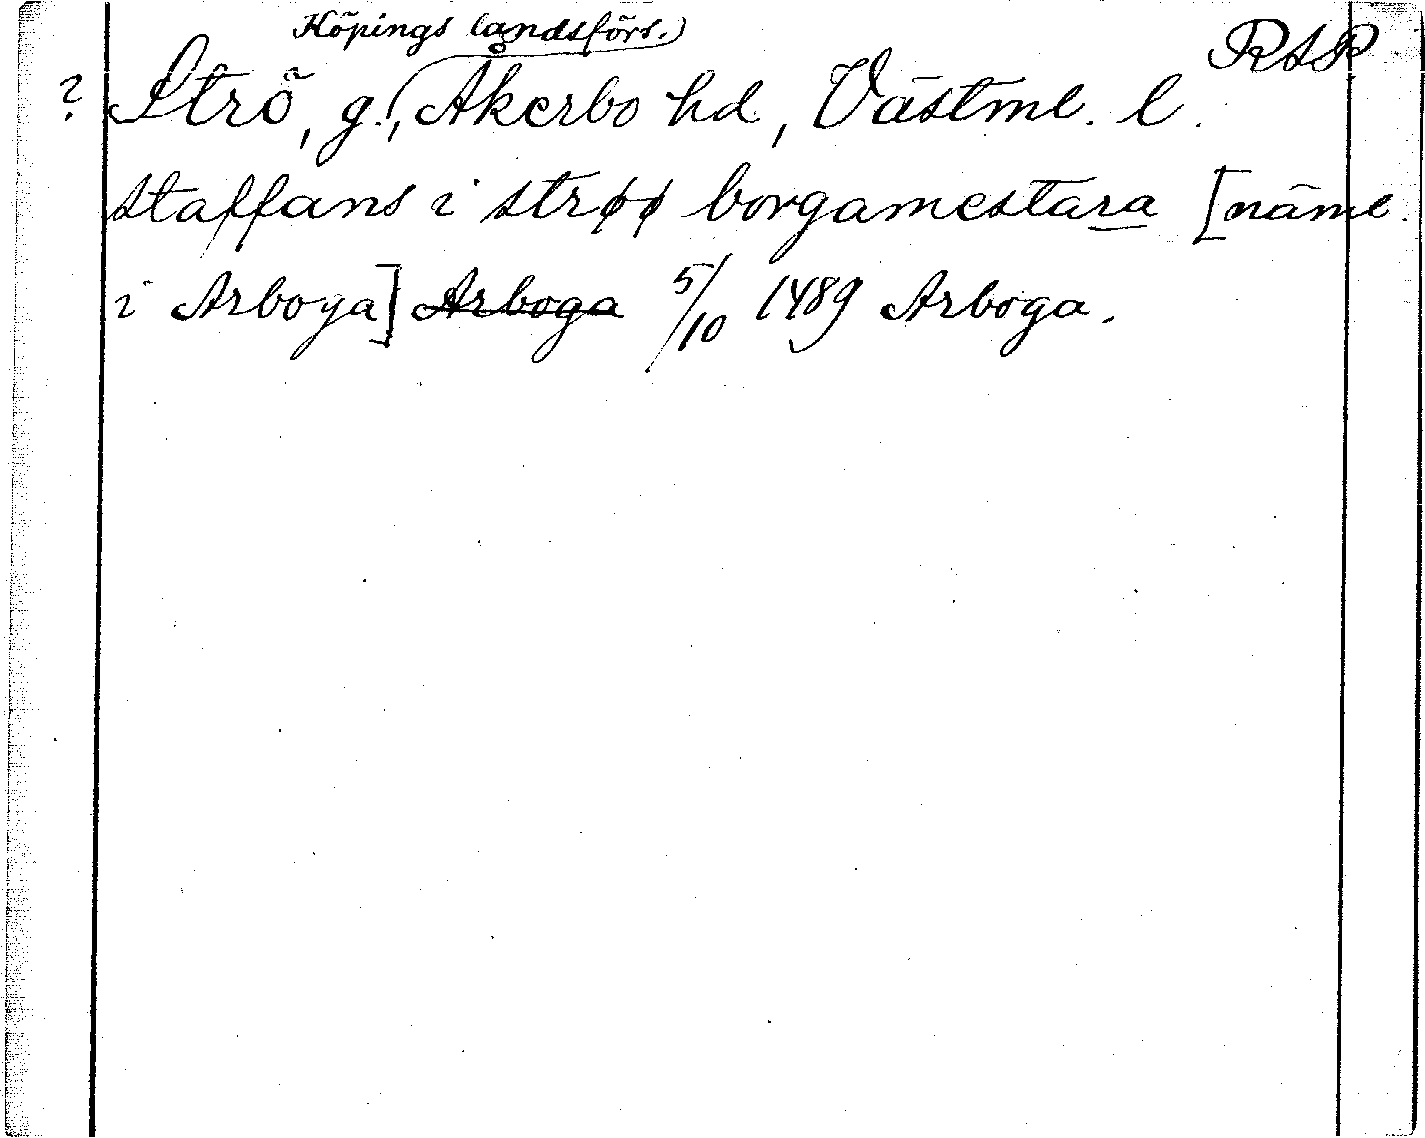 Köpings landsförs.)
RAP
? Strö, g., Åkerbo hd, Västml. l.
staffans i strøø borgamestara [näml.
i Arboga] Arboga 5/10 1489 Arboga.